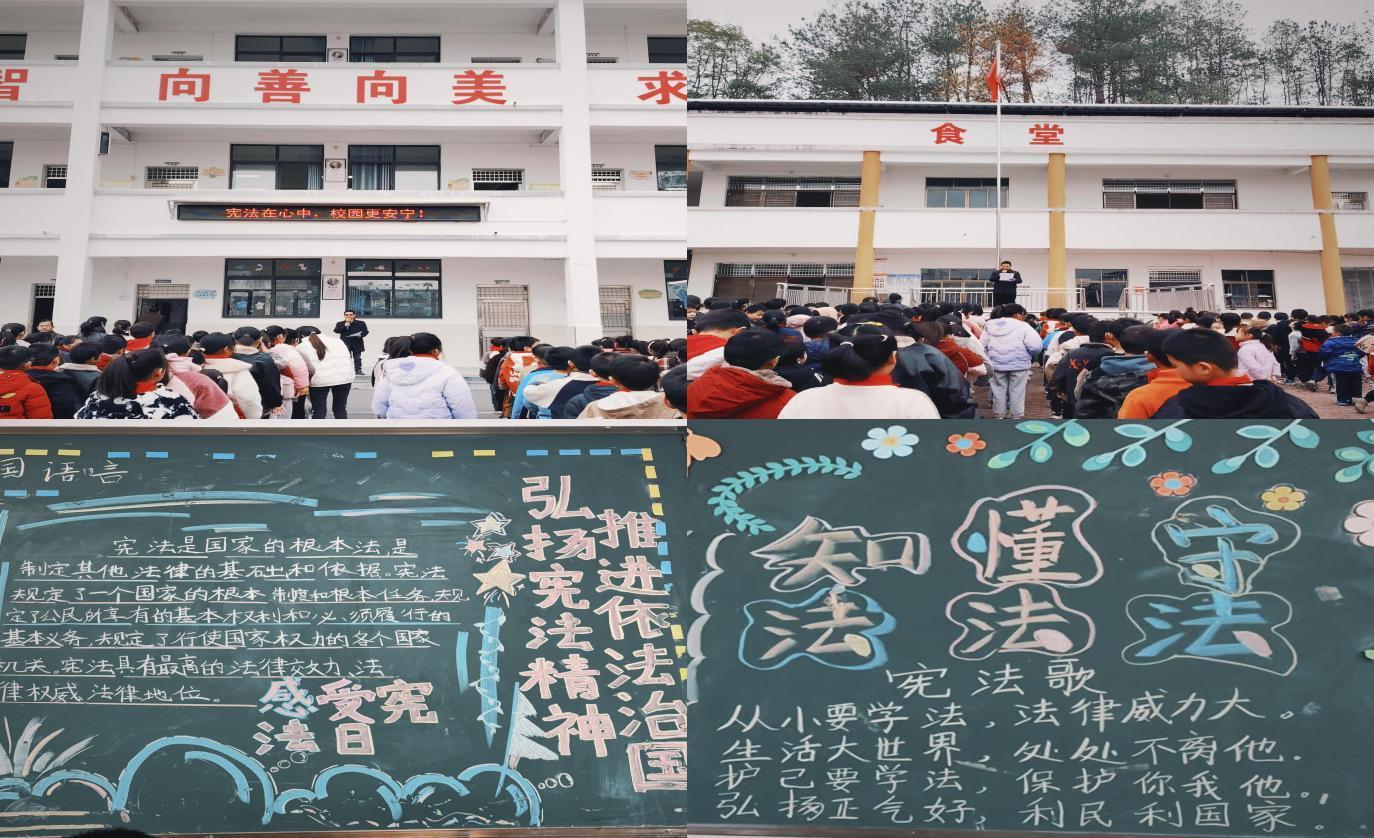 智 向善向美 求
宪法在心中，校园更安宁！
食堂
国语言
宪法是国家的根本法,是
制定其他法律的基础和依据。宪法
规定了一个国家的根本制度和根本任务,规
定了公民所享有的基本权利和必须履行的
基本义务,规定了行使国家权力的各个国家
机关。宪法具有最高的法律效力、法
律权威、法律地位。
感受宪
法日
弘扬宪法精神
推进依法治国
知法
懂法
守法
宪法歌
从小要学法，法律威力大。
生活大世界，处处不离他.
护己要学法，保护你我他.,
弘扬正气好，利民利国家.